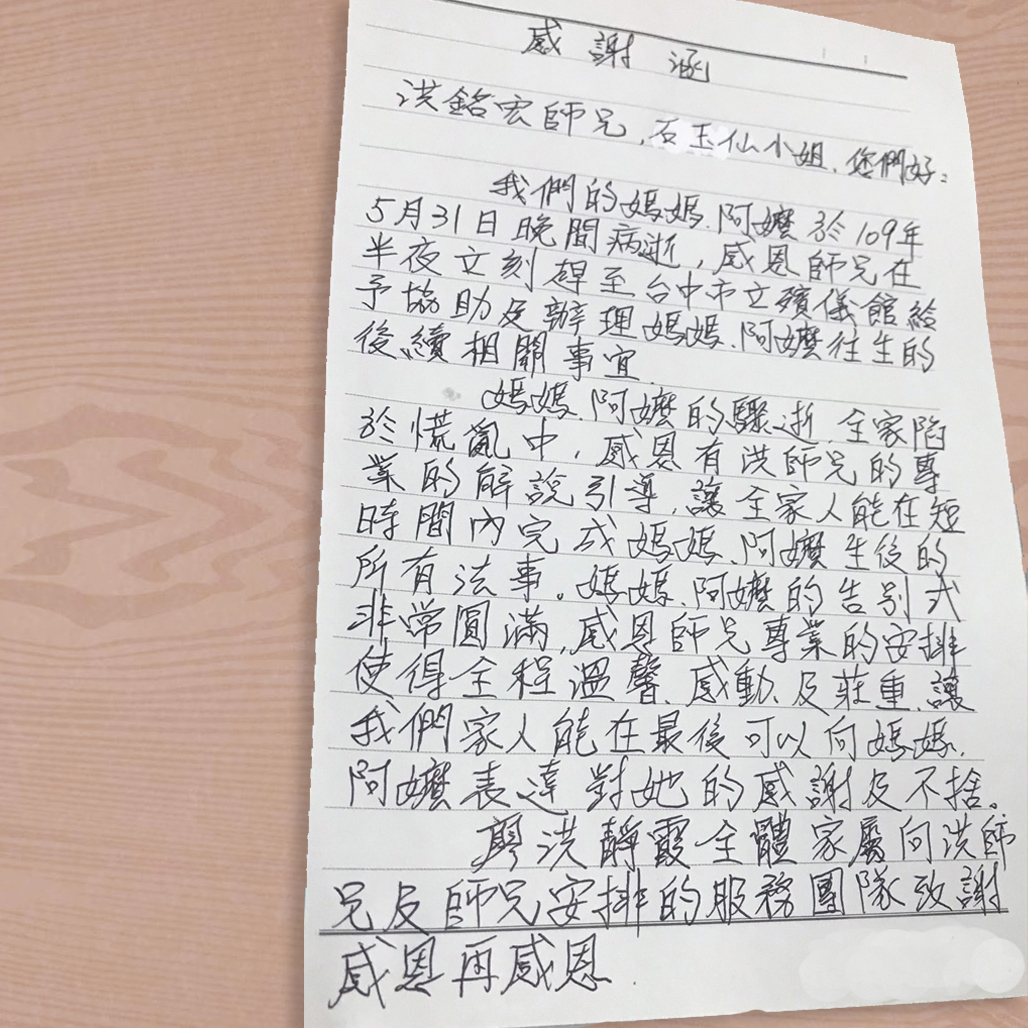 感謝涵
洪銘宏師兄,石玉仙小姐、您們好:
我們的媽媽、阿嬤於109年
5月31日晚間病逝,感恩師兄在
半夜立刻趕至台中市立殯儀館給
予協助及辦理媽媽、阿嬤往生的
後續相關事宜.
媽媽、阿嬤的驟逝、全家陷
於慌亂中,感恩有洪師兄的專
業的解說引導,讓全家人能在短
時間內完成媽媽、阿嬤生後的
所有法事。媽媽、阿嬤的告別式
非常圓滿,感恩師兄專業的安排
使得全程溫馨、感動、及莊重、讓
我們家人能在最後可以向媽媽、
阿嬤表達對她的感謝及不捨。
廖洪靜霞全體家屬向洪師
兄及師兄安排的服務團隊致謝
感恩再感恩.